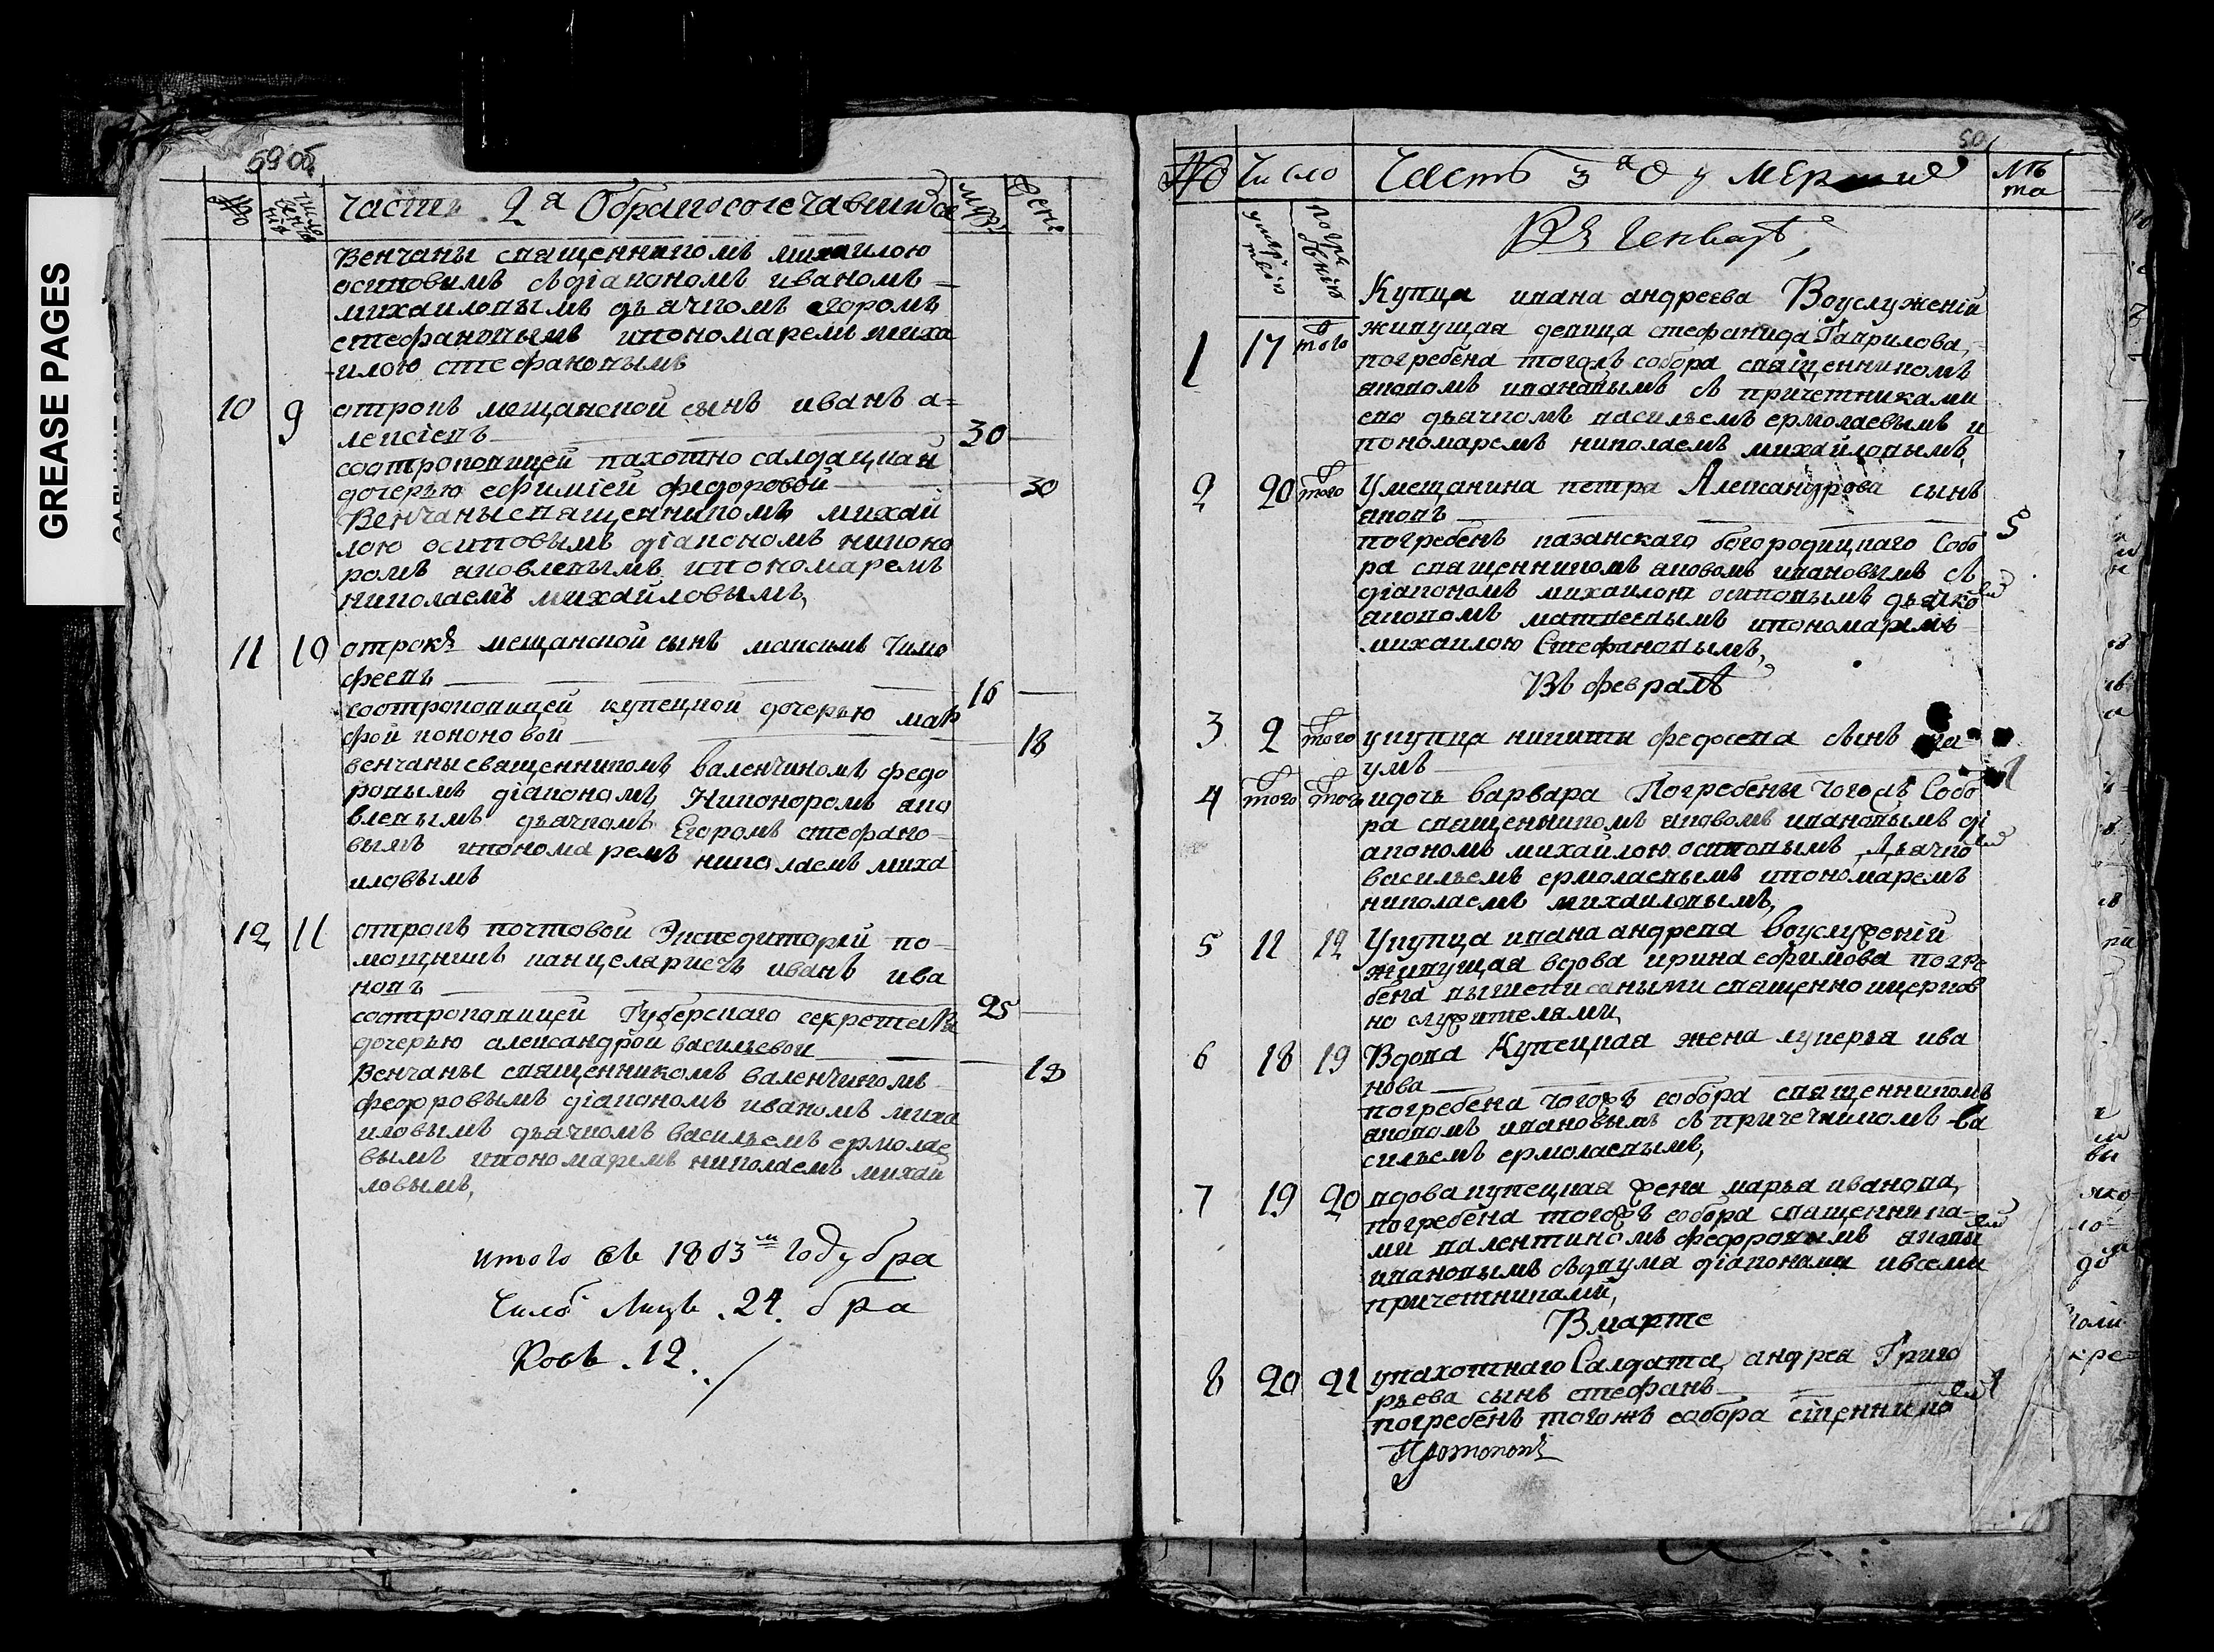 GREASE PAGES
59 об.
№
число венчания
Часть 2я О бракосочетавшихся
муж.
жен.
Венчаны священникомъ михаилою
осиповымъ съ діакономъ иваномъ =
михаиловымъ дьячкомъ егоромъ
стефановымъ ипономаремъ миха
-илою стефановымъ
10 9 отрокъ мещанской сынъ иванъ а=
лексіевъ 30
соотроковицей пахотно салдацкай
дочерью ефиміей федоровой 30
Венчаны священникомъ михай
лою осиповымъ діакономъ никоно
ромъ яковлевымъ ипономаремъ
николаемъ михайловымъ,
11 10 отрокъ мещанской сынъ максимъ тимо
феевъ 16
соотроковицей купецкой дочерью мар
фой кононовой 18
венчаны священникомъ валентиномъ федо
ровымъ діакономъ Никоноромъ яко
влевымъ дьячкомъ Егоромъ стефано-
вымъ ипономаремъ николаемъ миха
иловымъ
12 11 отрокъ почтовой Экспедиторіи по-
мощникъ канцеляристъ иванъ ива
новъ 25
соотроковицей Губерскаго секретаря
дочерью александрой васильевой 18
Венчаны священникомъ валентиномъ
федоровымъ діакономъ иваномъ миха
иловымъ дьячкомъ васильемъ ермолае
вымъ ипономаремъ николаемъ михай
ловымъ,
итого въ 1803мъ году бра
чилось Лицъ .24. бра
ковъ .12.
№ Число Часть 3я О умершихъ лѣта
умертвію погребенію
Въ Генварѣ,
Купца ивана андреева Воуслуженіи
1 17 того живущая девица стефанида Гаврилова,
погребена тогожъ собора священникомъ
яковомъ ивановымъ съ причетниками
ево дьячкомъ васильемъ ермолаевымъ и
пономаремъ николаемъ михайловымъ,
2 20 того Умещанина петра Александрова сынъ
яковъ 5
погребенъ казанскаго богородицкаго Собо
ра священникомъ яковомъ ивановымъ съ
діакономъ михаилою осиповымъ дьячкомъ
яковомъ матвеевымъ ипономаремъ
михаилою Стефановымъ,
Въ февралѣ
3 2 того укупца никиты федосева сынъ на-
умъ
4 того того идочь варвара Погребены тогожъ Собо 1
ра священникомъ яковомъ ивановымъ ді
акономъ михайлою осиповымъ дьячкомъ
васильемъ ермолаевымъ ипономаремъ
николаемъ михаиловымъ,
5 11 12 Укупца ивана андрева Воуслуженіи
живущая вдова ирина ефимова погре
бена вышеписаными священно ицерков
но служителями,
6 18 19 Вдова Купецкая жена лукерья ива
нова
погребена тогожъ собора священникомъ
яковомъ ивановымъ съ причетникомъ ва
сильемъ ермолаевымъ,
7 19 20 вдова купецкая жена марья иванова,
погребена тогожъ собора священника-
ми валентиномъ федоровымъ яковомъ
ивановымъ сьдвума діаконами ивсеми
причетниками,
Вмарте
8 20 21 упахотнаго Салдата, андрея Григо
рьева сынъ стефанъ 1
погребенъ тогожъ собора сщенникомъ
Протопопъ